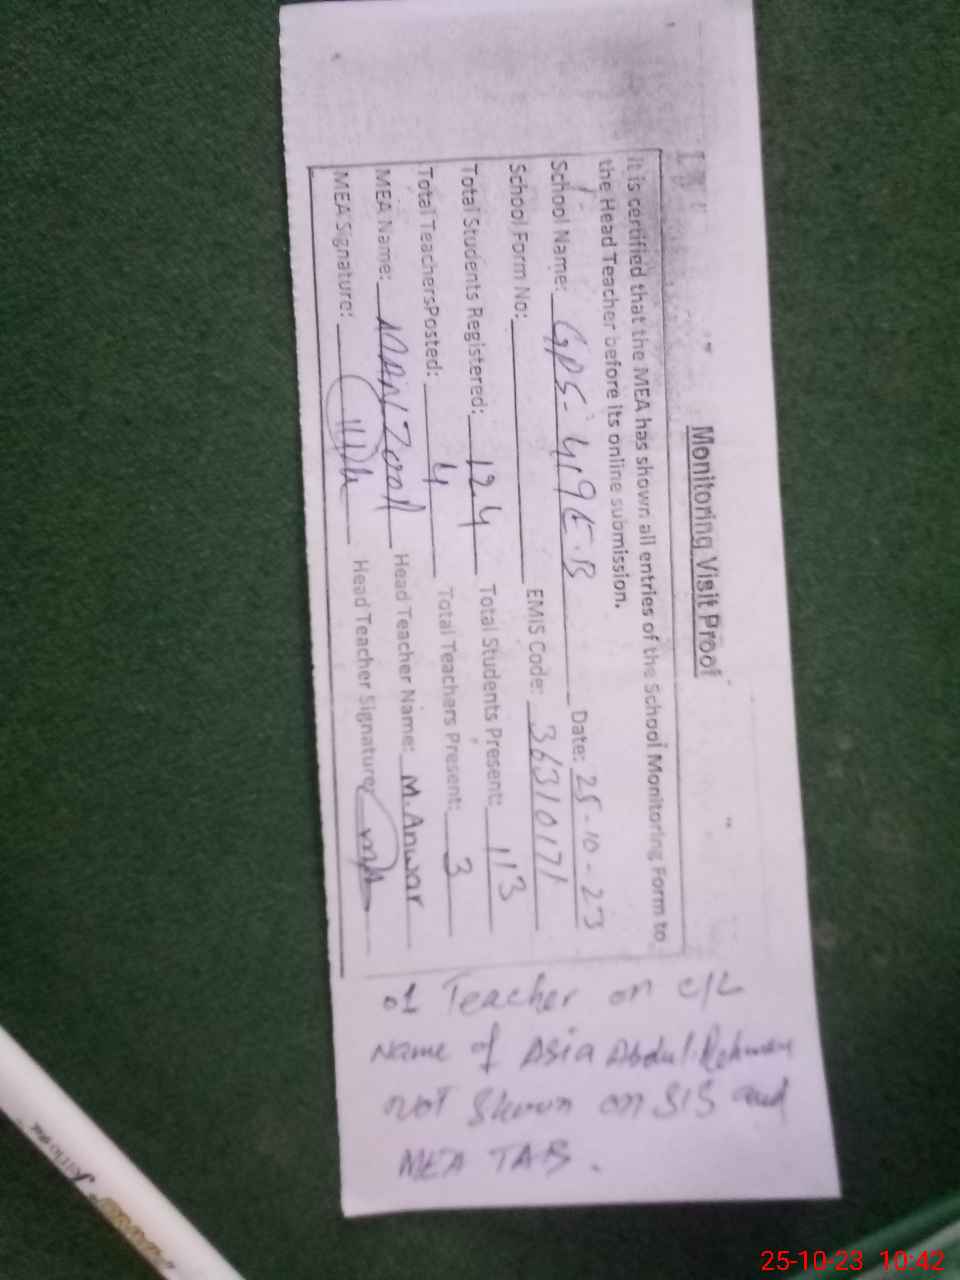 Monitoring Visit Proof
It is certified that the MEA has shown all entries of the School Monitoring Form to
the Head Teacher before its online submission.
School Name: GPS-419E.B Date: 25-10-23
School Form No: EMIS Code: 36310171
Total Students Registered: 124 Total Students Present: 113
Total TeachersPosted: 4 Total Teachers Present: 3
MEA Name: Head Teacher Name: M.Anwar
MEA Signature: Head Teacher Signature:
01 Teacher on C/L
Name of Asia Abdul Rehman
not Shown on SIS and
MEA TAB.
25-10-23 10:42